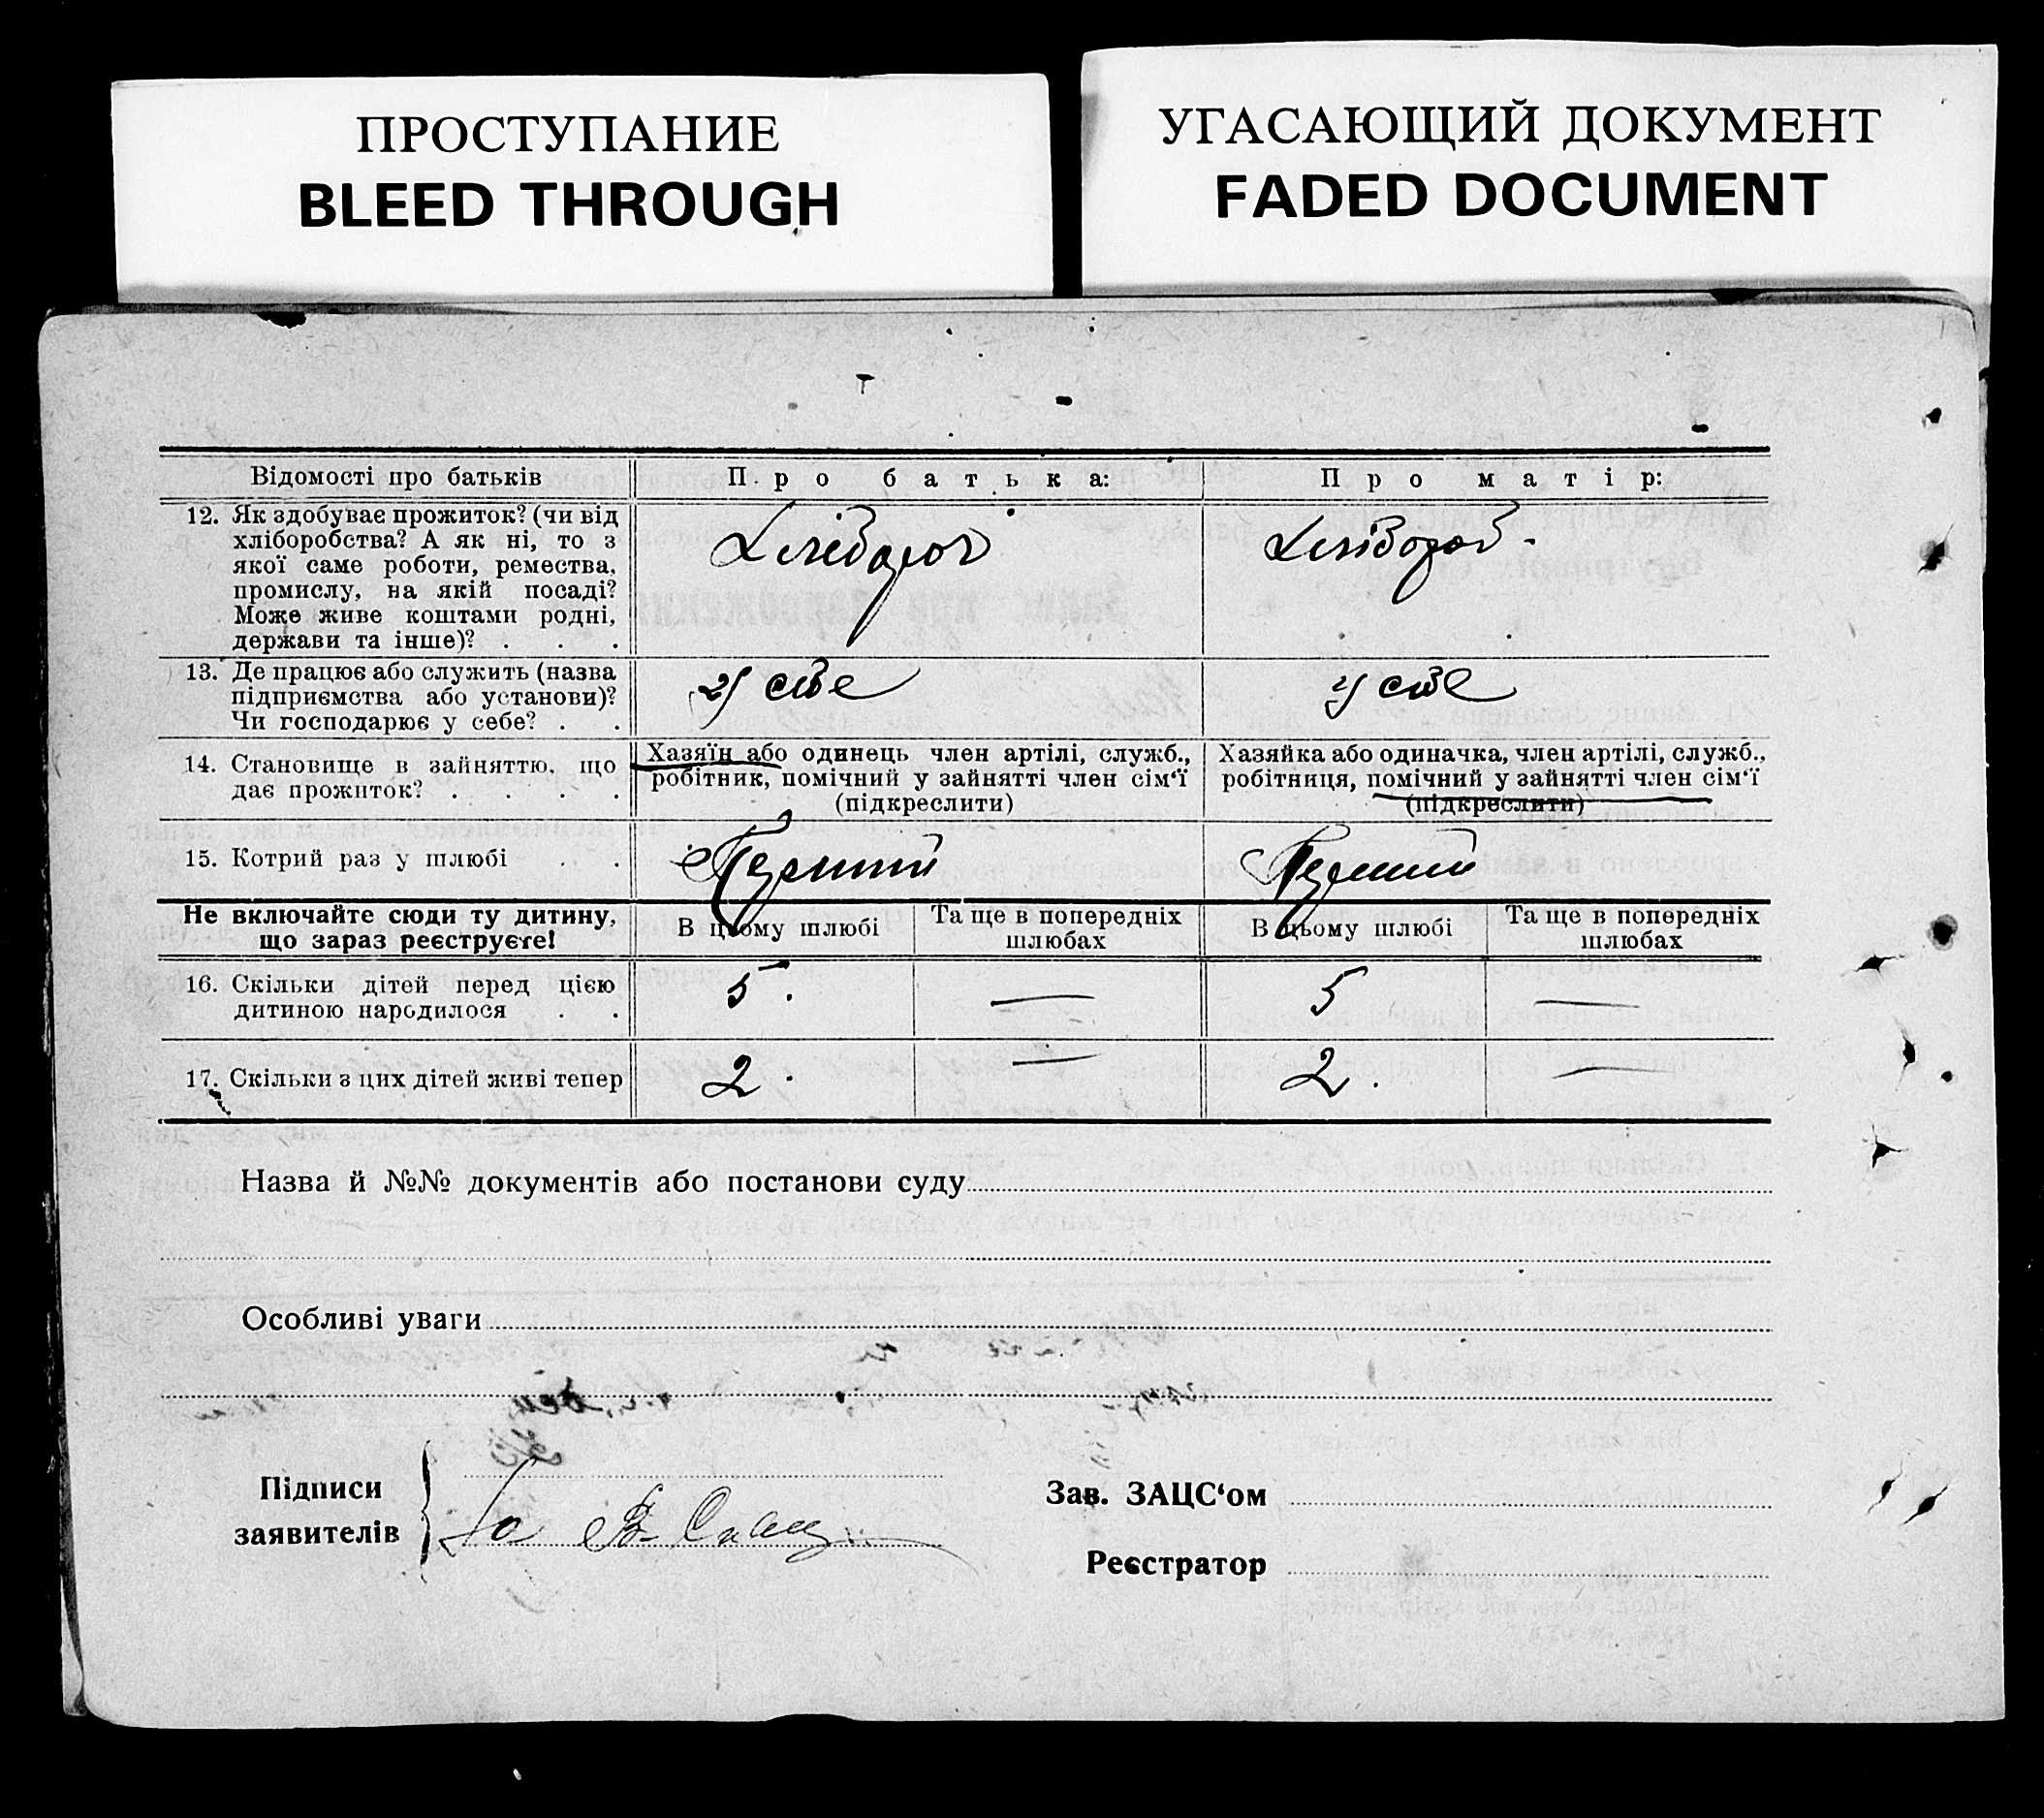 ПРОСТУПАНИЕ
BLEED THROUGH
УГАСАЮЩИЙ ДОКУМЕНТ
FADED DOCUMENT
Відомості про батьків
Про батька:
Про матір:
12. Як здобуває прожиток? (чи від
хліборобства? А як ні, то з
якої саме роботи, ремества,
промислу, на якій посаді?
Може живе коштами родні,
держави та інше)? . . .
Хлібороб
Хлібороб.
13. Де працює або служить (назва
підприємства або установи)?
Чи господарює у себе? . .
у себе
у себе
14. Становище в зайняттю, що
дає прожиток? . . . .
Хазяїн або одинець член артілі, служб.,
робітник, помічний у зайнятті член сім'ї
(підкреслити)
Хазяйка або одиначка, член артілі, служб.,
робітниця, помічний у зайнятті член сім'ї
(підкреслити)
15. Котрий раз у шлюбі . .
Первий
Первий
Не включайте сюди ту дитину,
що зараз реєструєте!
В цьому шлюбі
Та ще в попередніх
шлюбах
В цьому шлюбі
Та ще в попередніх
шлюбах
16. Скільки дітей перед цією
дитиною народилося . .
5. — 5 —
17. Скільки з цих дітей живі тепер
2. — 2. —
Назва й №№ документів або постанови суду
Особливі уваги
Підписи
заявителів
Зав. ЗАЦС'ом
Реєстратор